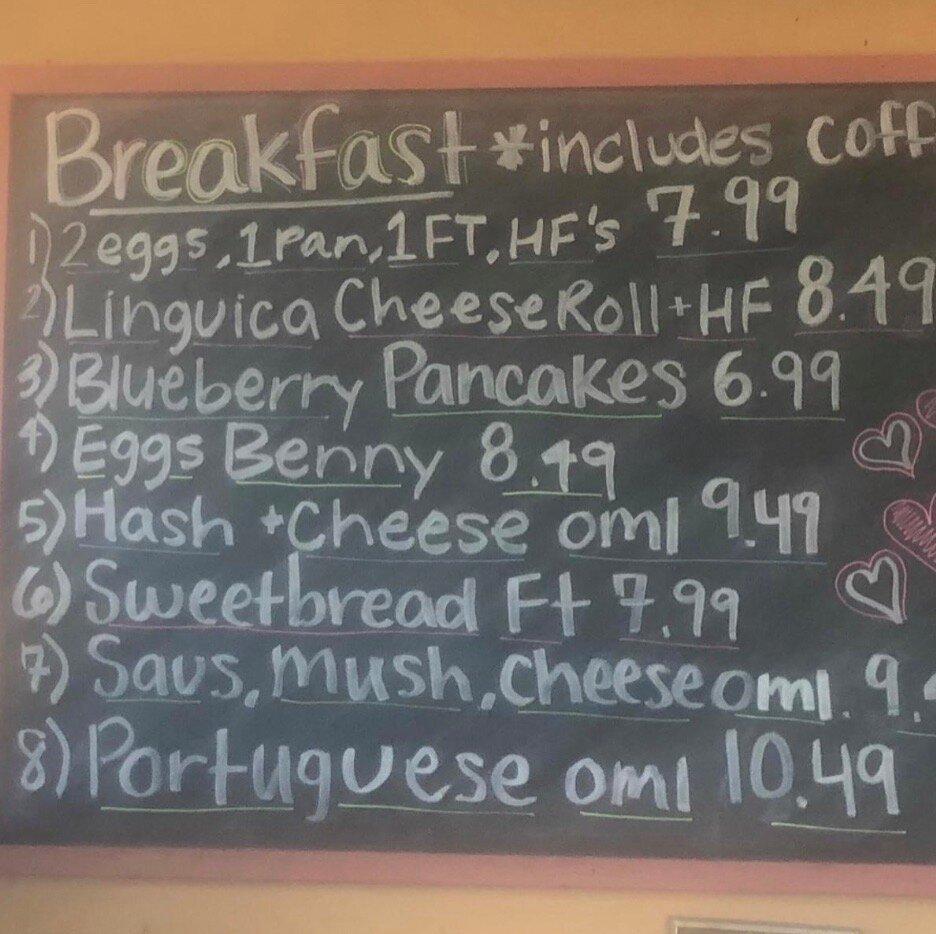 Breakfast *includes Coff
1) 2 eggs, 1 Pan, 1 FT, HF's 7.99
2) Linguica Cheese Roll + HF 8.49
3) Blueberry Pancakes 6.99
4) Eggs Benny 8.49
5) Hash + Cheese oml 9.49
6) Sweetbread Ft 7.99
7) Saus, Mush, Cheese oml. 9.
8) Portuguese oml 10.49